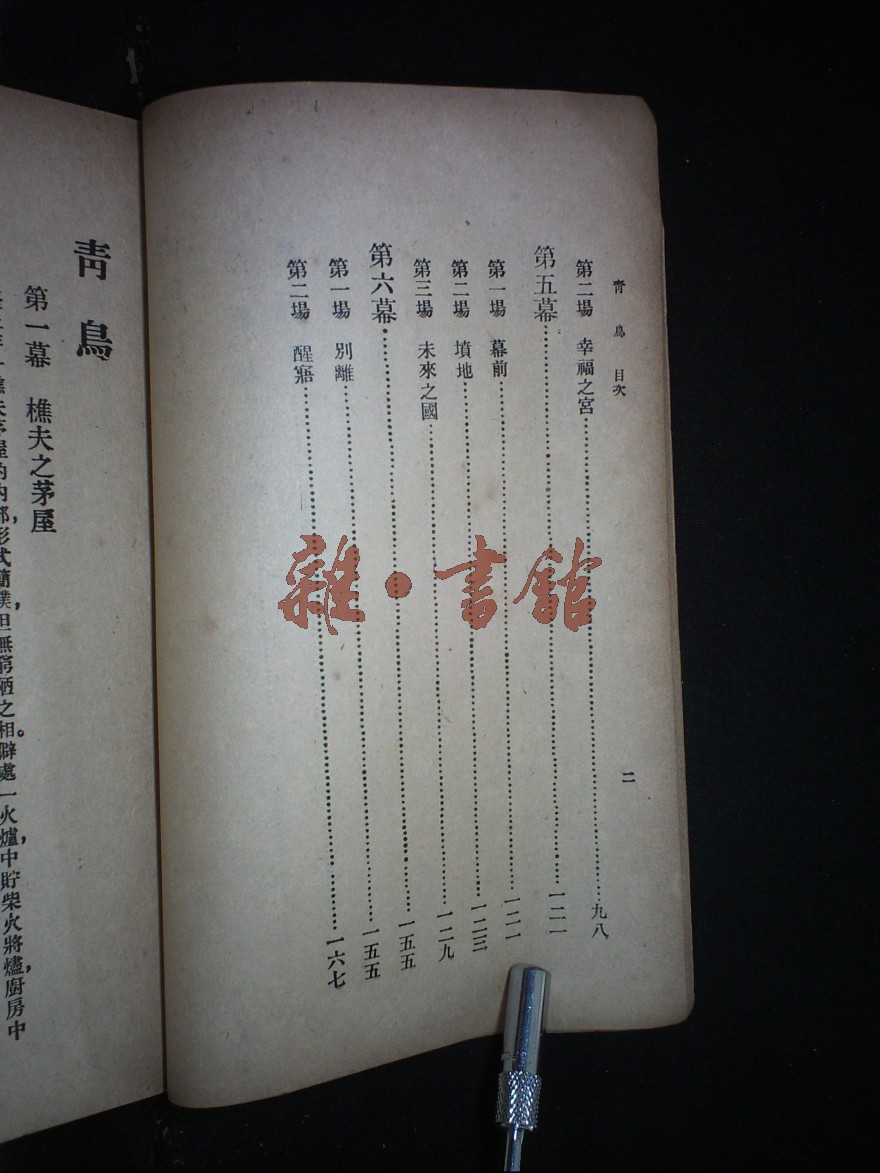 青鳥 目次
第二場 幸福之宮……九八
第五幕……一二一
第一場 幕前……一二一
第二場 墳地……一二三
第三場 未來之國……一二九
第六幕……一五五
第一場 別離……一五五
第二場 醒寤……一六七
二
雜·書館
青鳥
第一幕 樵夫之茅屋
屋的內部,形式簡樸,但無窮陋之相。僻處一火爐,中貯柴火將燼,廚房中